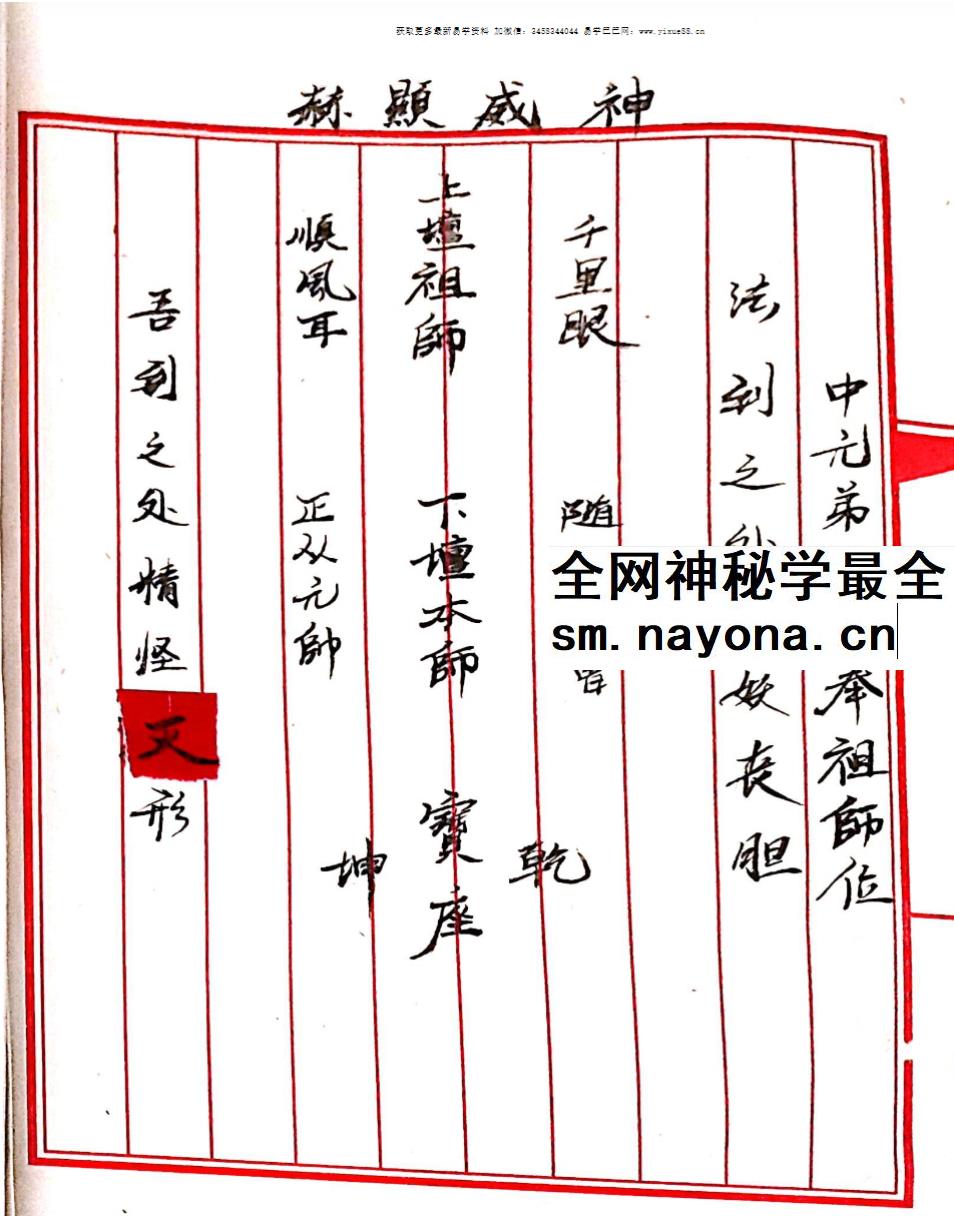 获取更多最新易学资料 加微信：3453344044 易学巴巴网：www.yixue88.cn
神威顯赫
中元弟
奉祖師位
法到之处
妖丧胆
千里眼
随
上壇祖師 下壇本師 寶座
乾
坤
順風耳 正从元帥
吾到之处精怪灭形
全网神秘学最全
sm.nayona.cn